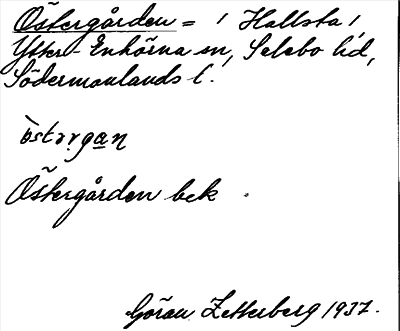 Östergården = / Hallsta /
Ytter-Enhörna sn, Selebo hd,
Södermanlands l.
òstərgan
Östergården bek
Göran Zetterberg 1937.